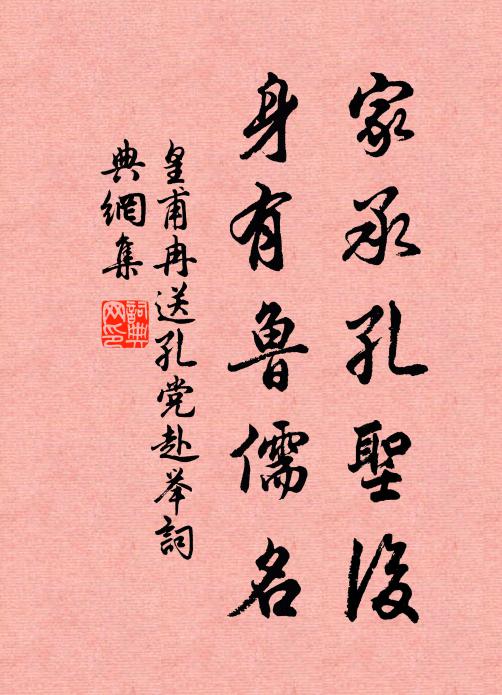 家承孔聖後
身有魯儒名
皇甫冉送孔党赴举詞
典網集
詞典
网印